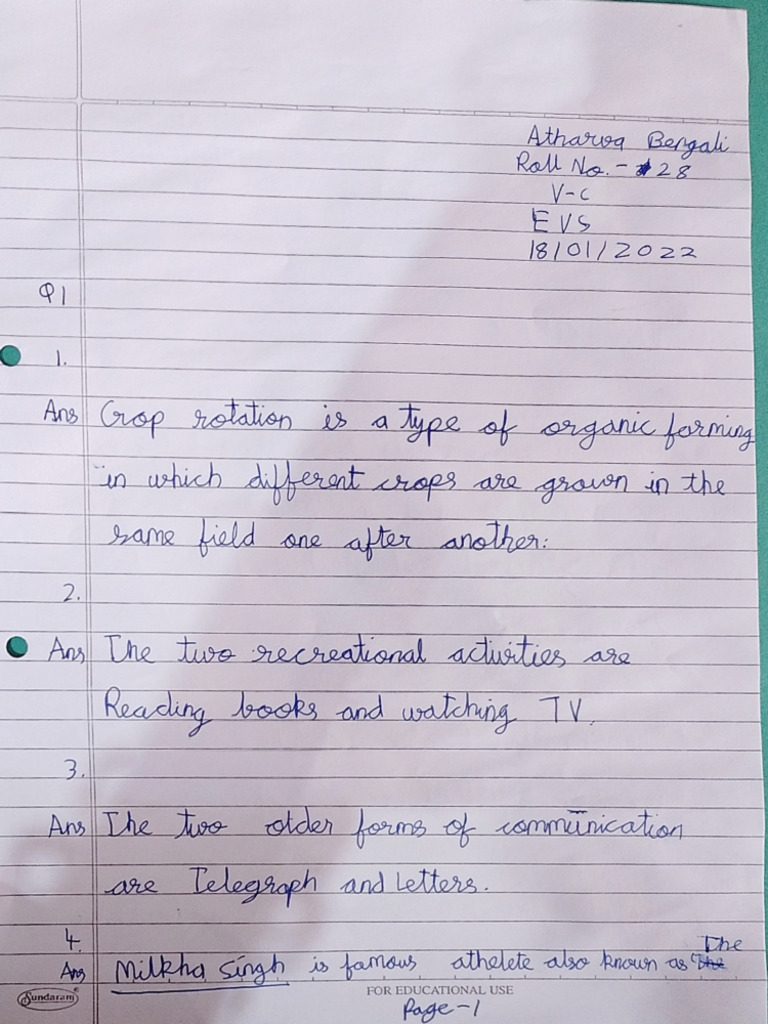 Atharva Bengali
Roll No. - 28
V-C
EVS
18/01/2022
Q1
1.
Ans Crop rotation is a type of organic farming
in which different crops are grown in the
same field one after another.
2.
Ans The two recreational activities are
Reading books and watching TV.
3.
Ans The two older forms of communication
are Telegraph and Letters.
4.
The
Ans Milkha Singh is famous athelete also known as "the
Sundaram
FOR EDUCATIONAL USE
Page-1